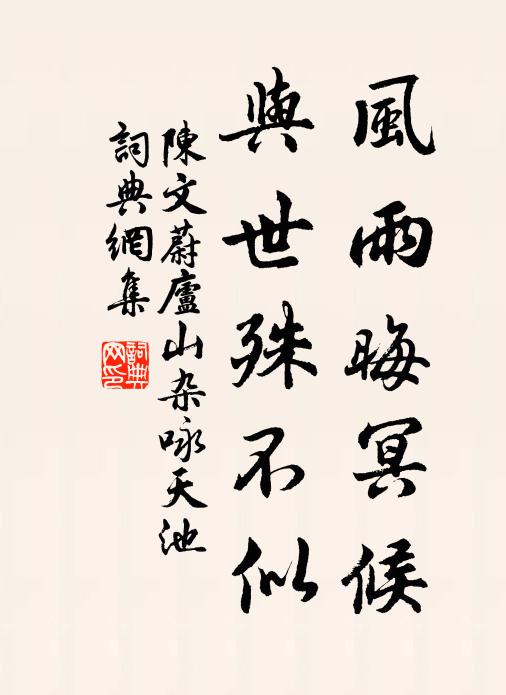 風雨晦冥候
與世殊不似
陳文蔚廬山杂咏天池
詞典網集
詞典网印